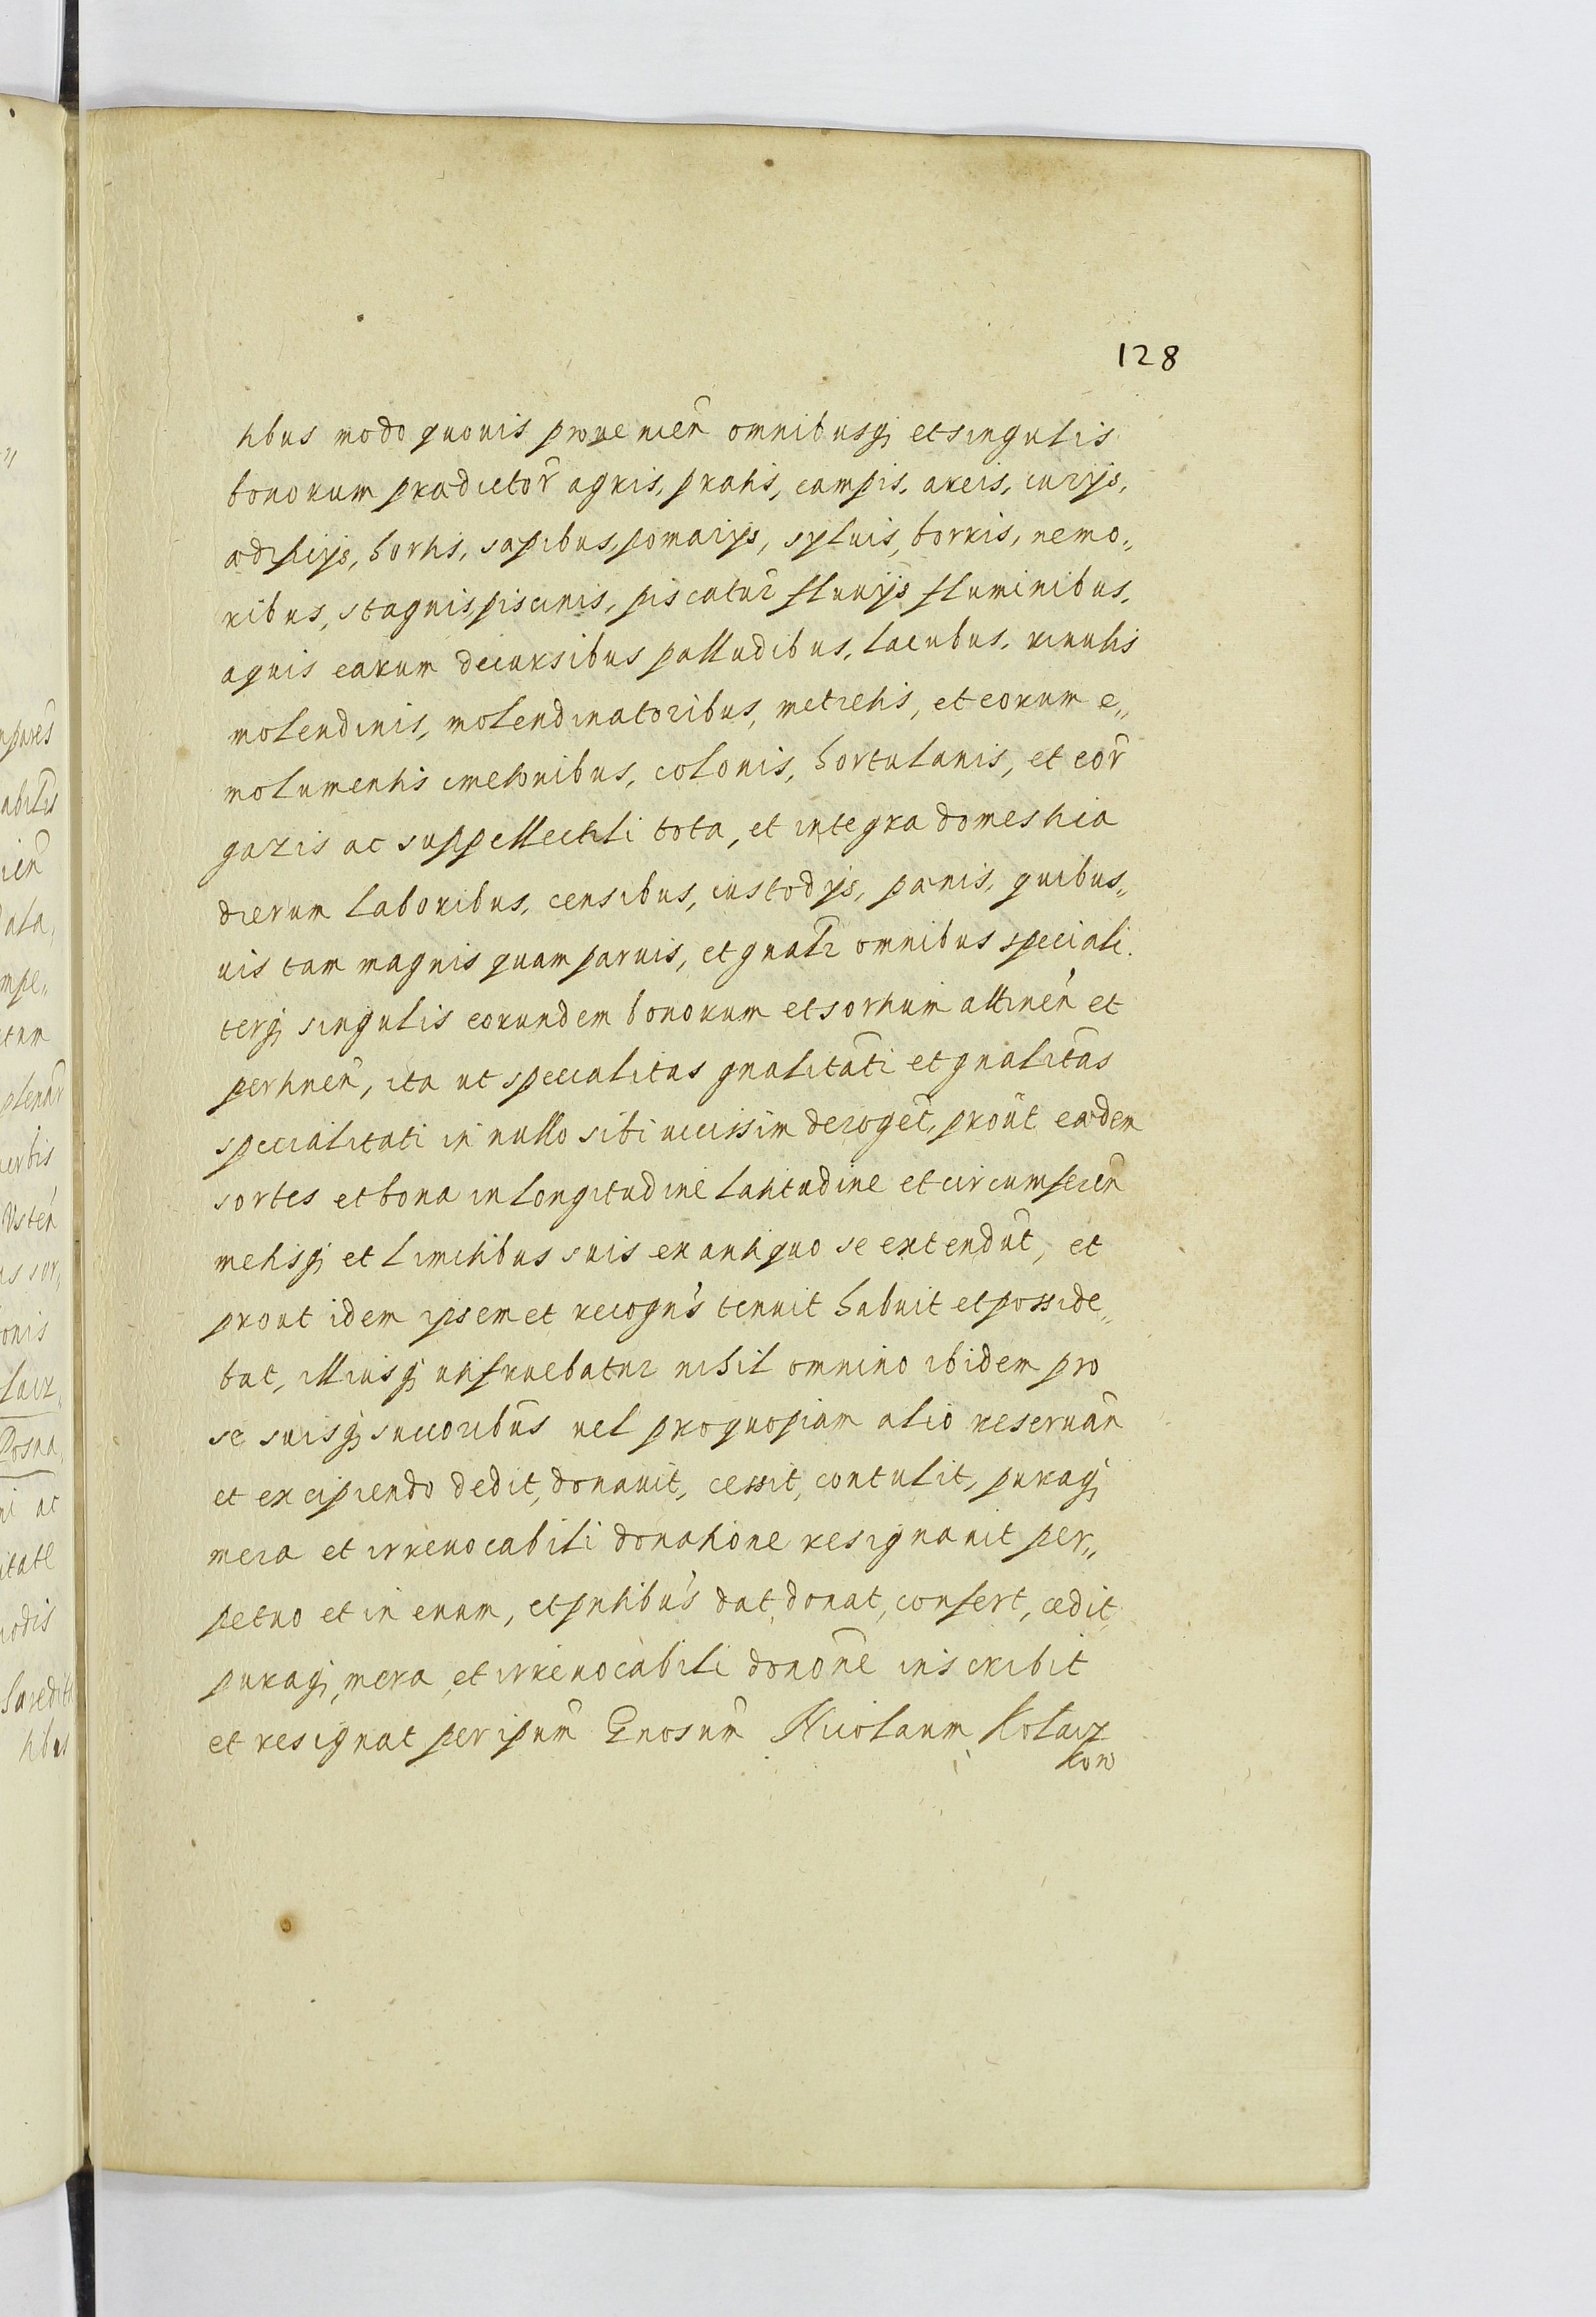 128
tibus modo quouis prouenień omnibusq; et singulis
bonorum prædictor̃ agris, pratis, campis, areis, curijs,
ædificijs, hortis, sæpibus, pomarijs, syluis, borris, nemo„
ribus, stagnis piscinis, piscatur̃ fluuijs fluminibus,
aquis earum decursibus palludibus, lacubus, riuulis
molendinis, molendinatoribus, metretis, et eorum e„
molumentis cmetonibus, colonis, hortulanis, et eor̃
gazis ac suppellectili tota, et integra domestica
dierum laboribus, censibus, custodijs, pænis, quibus„
uis tam magnis quam paruis, et gnalr̃ omnibus speciali
terq; singulis eorundem bonorum et sortium attineń et
pertineñ, ita ut specialitas gnalitati et gnalitas
specialitati in nullo sibi uicissim deroget, prout eædem
sortes et bona in longitudine latitudine et circumfereñ
metisq; et limitibus suis ex antiquo se extendũt, et
prout idem ipsemet recogńs tenuit habuit et posside„
bat, illiusq; utifruebatur nihil omnino ibidem pro
se suisq; succoribũs uel pro quopiam alio reseruañ
et excipiendo dedit, donauit, cessit, contulit, puraq;
mera et irreuocabili donatione resignauit per„
petuo et in æuum, et pntibus dat, donat, confert, cædit
puraq;, mera, et irreuocabili donõne inscribit
et resignat per ipum Gnosum Nicolaum Kolacz
kow
npares
abilis
ień
mpe„
tum
plenar̃
uerbis
onis
lacz
Posna„
ni ac
itate
odis
hæredita
tibus